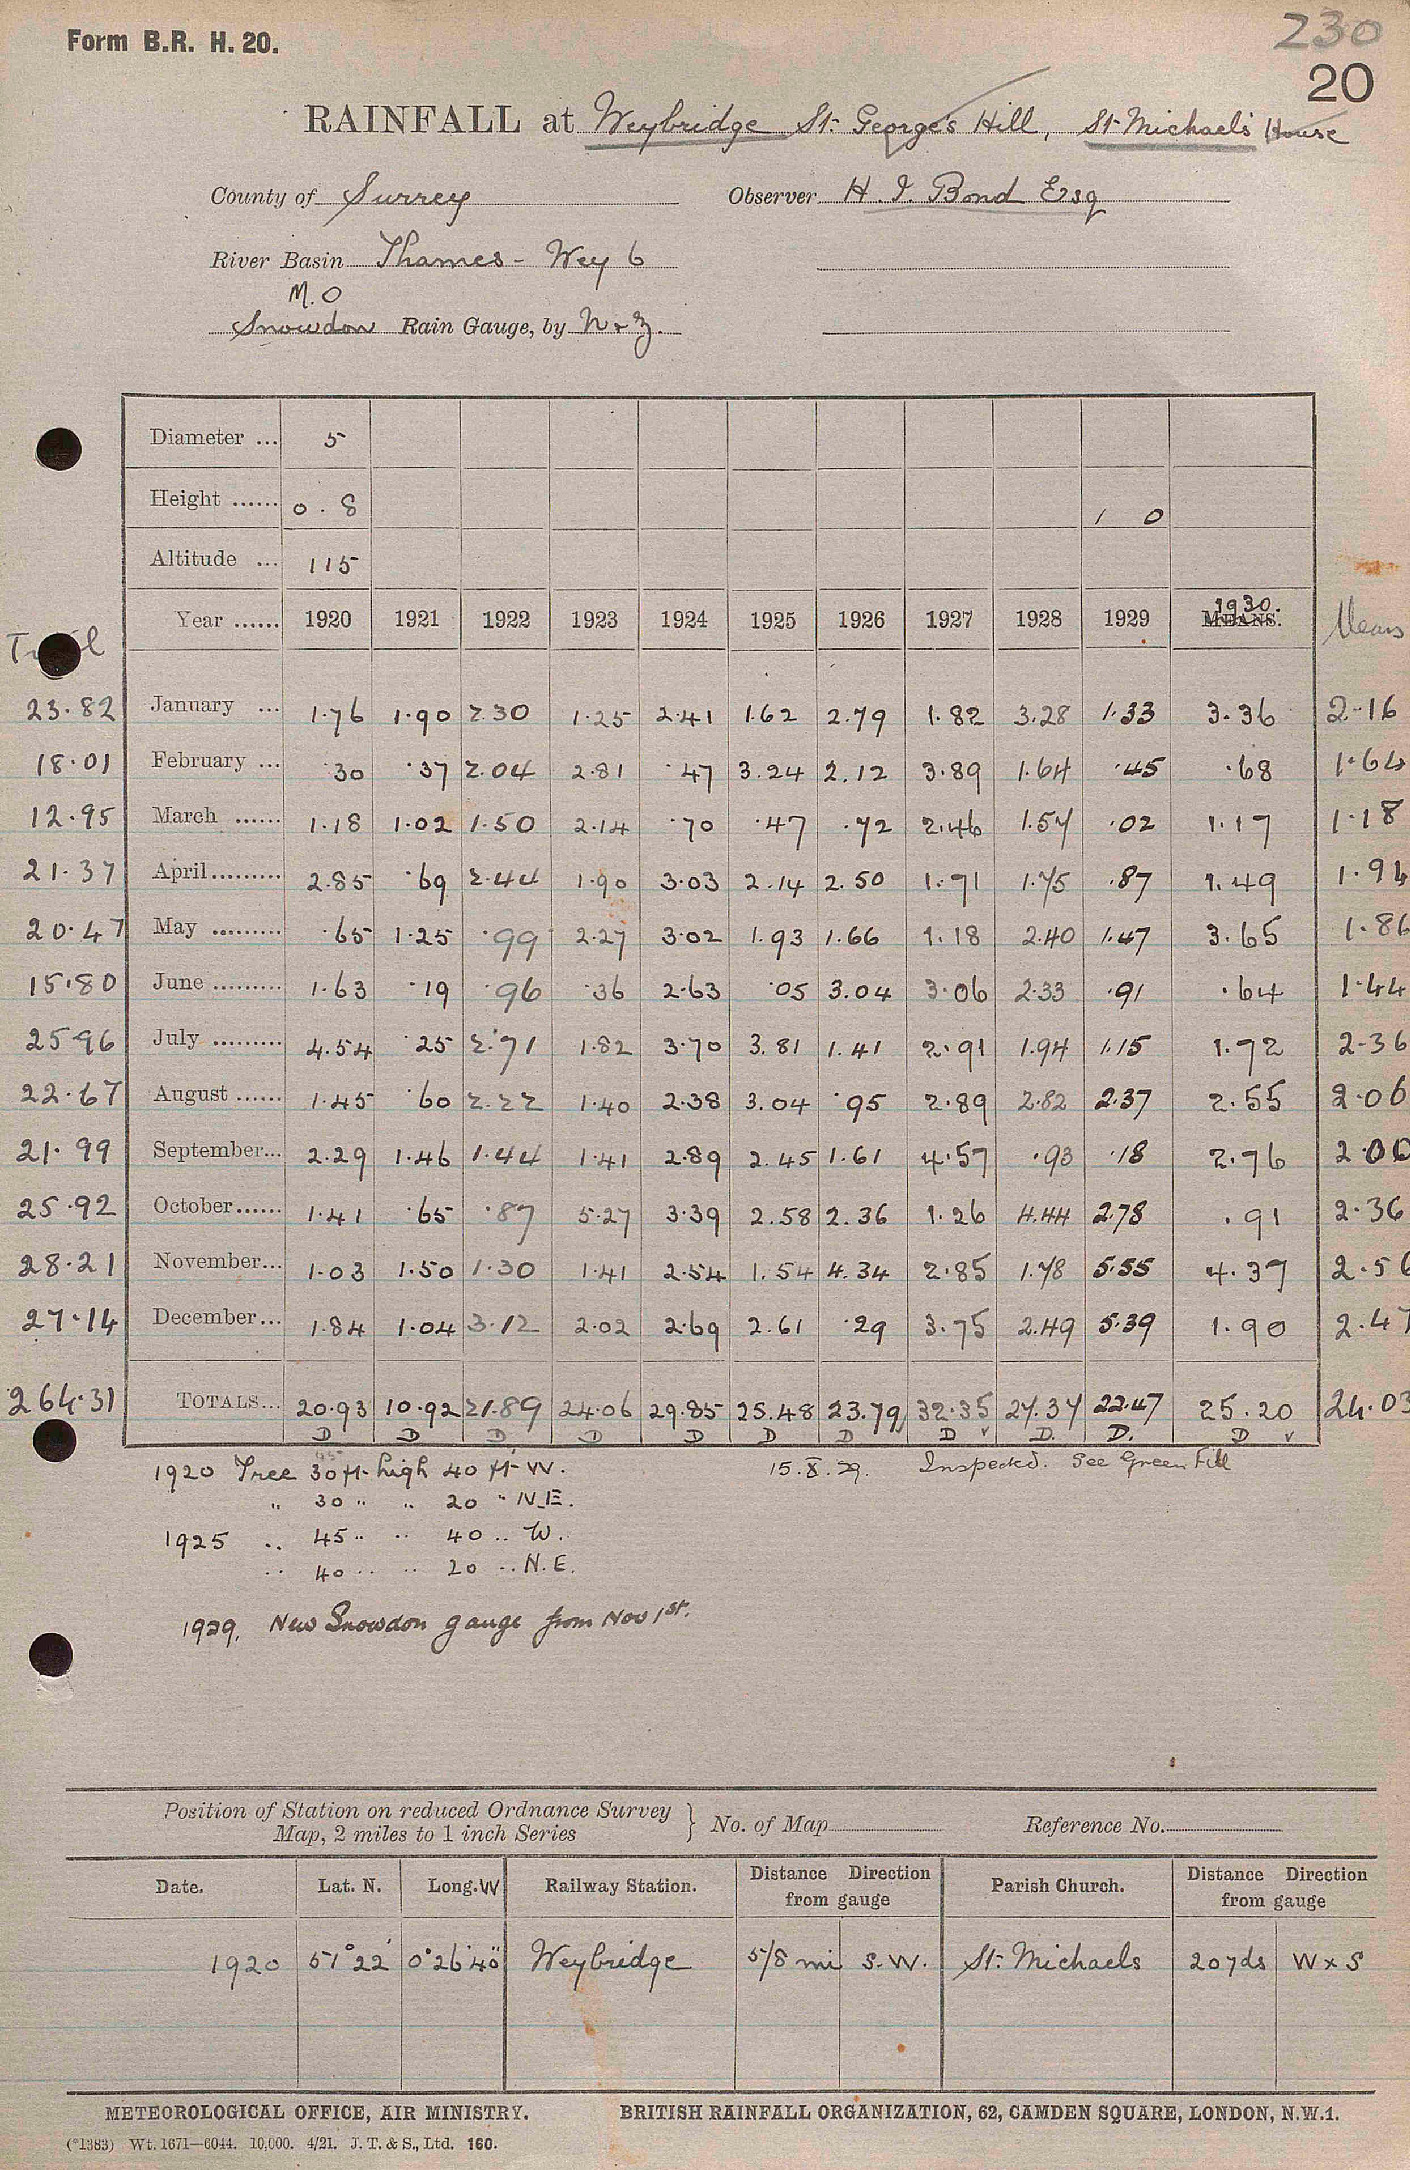 Form B.R. H. 20.
230
20
RAINFALL at Weybridge St. George's Hill, St. Michael's House
County of Surrey Observer H. J. Bond Esq
River Basin Thames - Wey 6
M.O
Snowdon Rain Gauge, by N & Z.
Diameter ... 5
Height ...... 0.8 1 0
Altitude ... 115
Year ...... 1920 1921 1922 1923 1924 1925 1926 1927 1928 1929 1930. MEANS. Means
23.82 January ... 1.76 1.90 2.30 1.25 2.41 1.62 2.79 1.82 3.28 1.33 3.36 2.16
18.01 February ... .30 .37 2.04 2.81 .47 3.24 2.12 3.89 1.64 .45 .68 1.64
12.95 March ...... 1.18 1.02 1.50 2.14 .70 .47 .72 2.46 1.57 .02 1.17 1.18
21.37 April......... 2.85 .69 2.44 1.90 3.03 2.14 2.50 1.71 1.75 .87 1.49 1.94
20.47 May ......... .65 1.25 .99 2.27 3.02 1.93 1.66 1.18 2.40 1.47 3.65 1.86
15.80 June ......... 1.63 .19 .96 .36 2.63 .05 3.04 3.06 2.33 .91 .64 1.44
25.96 July ......... 4.54 .25 2.71 1.82 3.70 3.81 1.41 2.91 1.94 1.15 1.72 2.36
22.67 August ...... 1.45 .60 2.22 1.40 2.38 3.04 .95 2.89 2.82 2.37 2.55 2.06
21.99 September... 2.29 1.46 1.44 1.41 2.89 2.45 1.61 4.57 .93 .18 2.76 2.00
25.92 October...... 1.41 .65 .87 5.27 3.39 2.58 2.36 1.26 4.44 2.78 .91 2.36
28.21 November... 1.03 1.50 1.30 1.41 2.54 1.54 4.34 2.85 1.78 5.55 4.37 2.56
27.14 December... 1.84 1.04 3.12 2.02 2.69 2.61 .29 3.75 2.49 5.39 1.90 2.47
264.31 TOTALS... 20.93 10.92 21.89 24.06 29.85 25.48 23.79 32.35 27.37 22.47 25.20 24.03
D D D D D D D D v D. D. D v
1920 Tree 30 ft. high 40 ft. W. 15.X.29. Inspected. See Green Fill
" 30 " " 20 " N.E.
1925 .. 45 .. .. 40 .. W.
.. 40 .. .. 20 .. N.E.
1929. New Snowdon gauge from Nov 1st.
Position of Station on reduced Ordnance Survey
Map, 2 miles to 1 inch Series } No. of Map Reference No.
Date. Lat. N. Long. W Railway Station. Distance Direction from gauge Parish Church. Distance Direction from gauge
1920 51° 22' 0° 26' 40" Weybridge 5/8 mi S.W. St. Michaels 20 yds W x S
METEOROLOGICAL OFFICE, AIR MINISTRY. BRITISH RAINFALL ORGANIZATION, 62, CAMDEN SQUARE, LONDON, N.W.1.
(*1383) Wt. 1671—6044. 10,000. 4/21. J. T. & S., Ltd. 160.